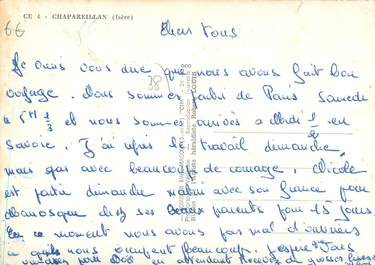 66
CE 4 - CHAPAREILLAN (Isère)
Chers Tous
38
Je viens vous dire que nous avons fait bon
voyage. Nous sommes partis de Paris Samedi
à 5H 1/2 et nous sommes arrivés à Midi 1/2 en
Savoie. J'ai repris le travail dimanche,
mais pas avec beaucoup de courage, Nicole
est partie dimanche matin avec son fiancé pour
Manosque chez ses beaux parents pour 15 jours.
En ce moment nous avons pas mal d'ouvriers
qui nous occupent beaucoup. J'espère Tous
en attendant Recevez de grosses bises